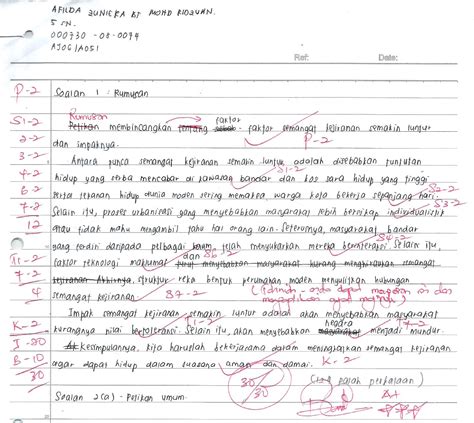 AFILDA JUNIEKA BT MOHD RIDZUAN.
5 SN.
000730 - 08 - 0094
AJ061A051
Ref: Date:
P-2 Soalan 1 : Rumusan
Rumusan faktor
S1-2 Petikan membincangkan tentang sebab - faktor semangat kejiranan semakin luntur
2-2 dan impaknya. P-2
3-2 Antara punca semangat kejiranan semakin luntur adalah disebabkan tuntutan
4-2 hidup yang serba mencabar di kawasan bandar dan kos sara hidup yang tinggi S1-2
6-2 serta tekanan hidup dunia moden sering memaksa warga kota bekerja sepanjang hari. S2-2
7-2 Selain itu, proses urbanisasi yang menyebabkan masyarakat lebih bersikap individualistik S3-2
12 atau tidak mahu mengambil tahu hal orang lain. Seterusnya, masyarakat bandar
yang terdiri daripada pelbagai kaum telah menyukarkan mereka berinteraksi. Selain itu, S4-2
I1-2 faktor teknologi maklumat dan S6-2 menyebabkan masyarakat kurang menghiraukan semangat
7-2 kejiranan. Akhirnya, struktur reka bentuk perumahan moden menyulitkan hubungan
4 semangat kejiranan. S7-2
Impak semangat kejiranan semakin luntur adalah akan menyebabkan masyarakat
K-2 kurangnya nilai bertoleransi. I1-2 Selain itu, akan menyebabkan masyarakat negara menjadi mundur. I7-2
I-20 Kesimpulannya, kita haruslah bekerjasama dalam meningkatkan semangat kejiranan
B-10 agar dapat hidup dalam suasana aman dan damai. K-2
30
30/30 A+
Soalan 2(a) - Petikan umum.